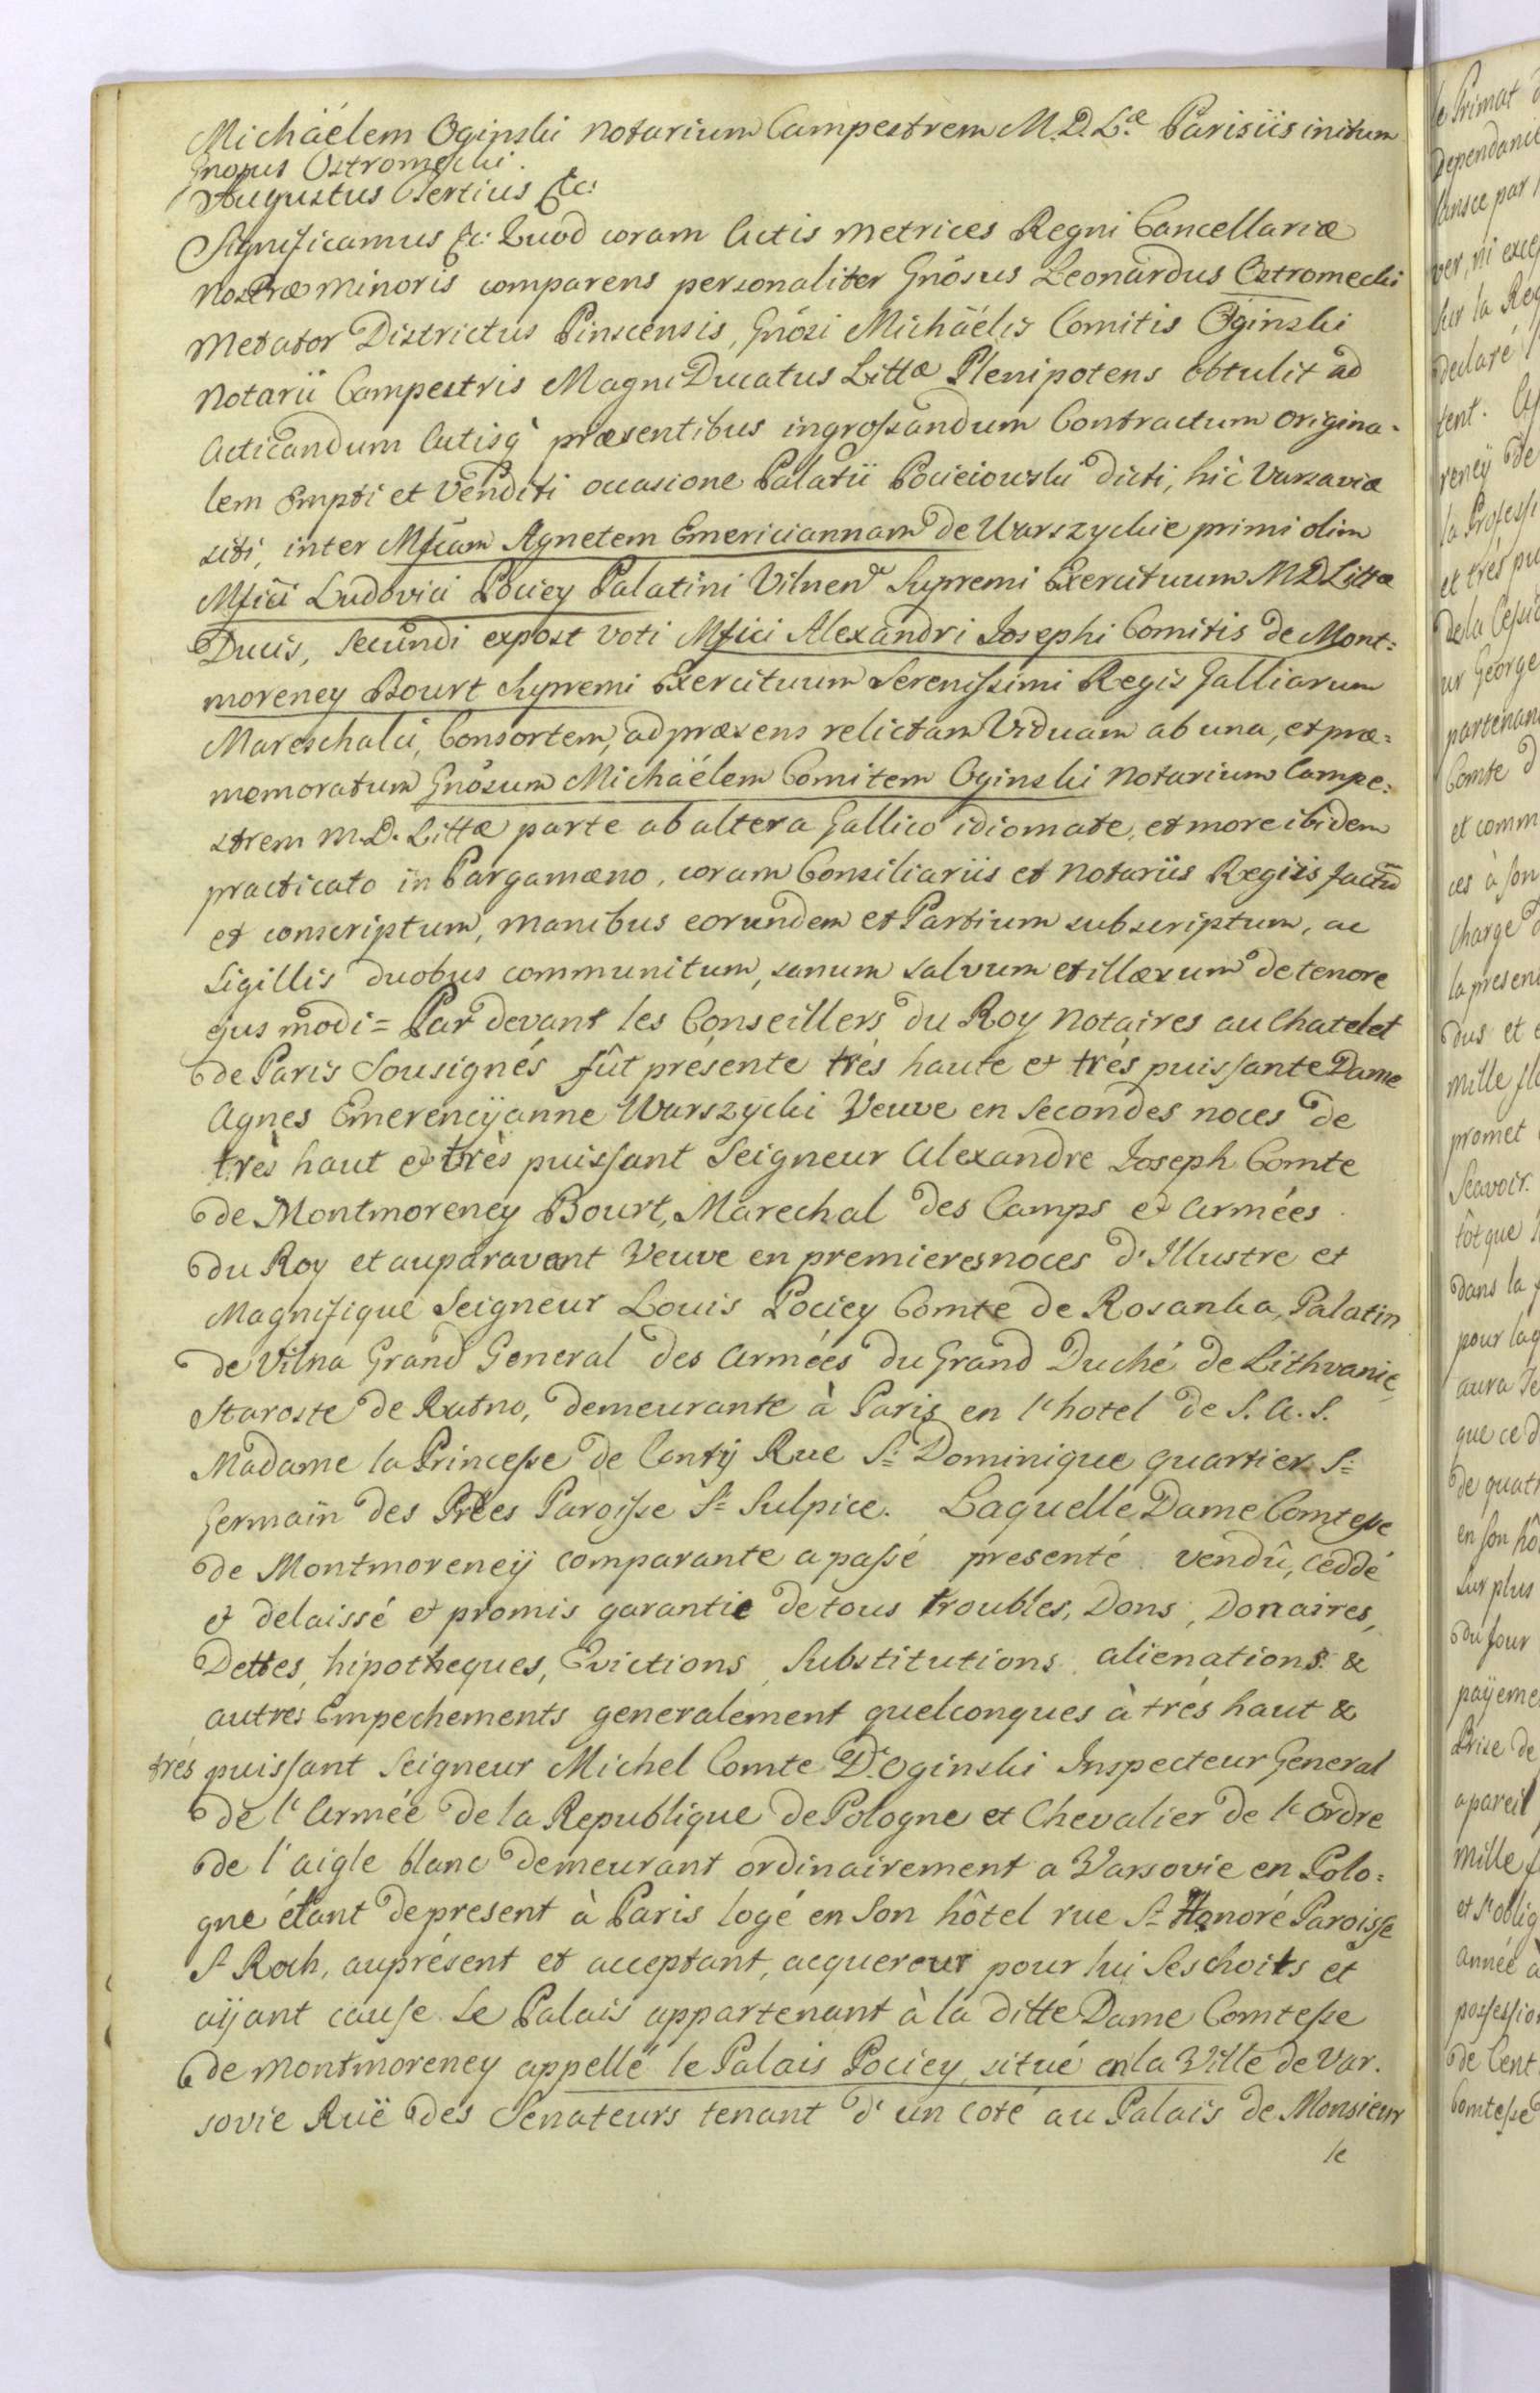 Michäélem Oginski Notarium Campestrem M.D.L.æ Parisiis initum
Gnosus Ostromecki.
Augustus Tertius &c:
Significamus &c: Quod coram Actis Metrices Regni Cancellariæ
Nostræ Minoris comparens personaliter Gnôsus Leonardus Ostromecki
Metator Districtus Pinscensis, Gnôsi Michäélis Comitis Oginski
Notarii Campestris Magni Ducatus Littæ Plenipotens obtulit ad
Acticandum Actisq̀ præsentibus ingrossandum Contractum origina-
lem Empti et Venditi occasione Palatii Pocieiowski dicti, hic Varsaviæ
siti, inter Mficam Agnetem Emericiannam de Warszyckie primi olim
Mfici Ludovici Pociey Palatini Vilnen Supremi Exercituum M D Littæ
Ducis, secundi expost voti Mfici Alexandri Josephi Comitis de Mont=
moreney Bourt Supremi Exercituum Serenissimi Regis Galliarum
Mareschalci, Consortem, ad præsens relictam Viduam ab una, et præ=
memoratum Gnôsum Michäélem Comitem Oginski Notarium Campe=
strem M.D. Littæ parte ab altera Gallico idiomate, et more ibidem
practicato in Pargamæno, coram Consiliariis et Notariis Regiis factū
et conscriptum, manibus eorundem et Partium subscriptum, ac
Sigillis duobus communitum, sanum salvum et illæsum de tenore
ejus modi = Par devant les Conseillers du Roy Notaires au Chatelet
de Paris Sousignés fût présente trés haute et trés puissante Dame
Agnes Emerencÿanne Warszycki Veuve en Secondes noces de
très haut et très puissant Seigneur Alexandre Joseph Comte
de Montmoreney Bourt, Marechal des Camps et Armées
du Roy et auparavant Veuve en premieres noces d'Illustre et
Magnifique Seigneur Louis Pociey Comte de Rosanka, Palatin
de Vilna Grand General des Armées du Grand Duché de Lithvanie,
Staroste de Ratno, demeurante à Paris en l'hotel de S. A. S.
Madame la Princesse de Contÿ Rue St. Dominique quartier St.
Germaïn des Prées Paroisse St. Sulpice. Laquelle Dame Comtesse
de Montmoreneÿ comparante a passé presenté vendû, ceddé
et delaissé et promis garantie de tous troubles, Dons, Donaires,
Dettes, hipotheques, Evictions, Substitutions alienations &
autres Empechements generalement quelconques à trés haut &
trés puissant Seigneur Michel Comte D'Oginski Inspecteur General
de l'Armée de la Republique de Pologne et Chevalier de l'ordre
de l'aigle blanc demeurant ordinairement a Varsovie en Polo=
gne étant de present à Paris logé en Son hôtel rue St Honoré Paroisse
St Roch, auprésent et acceptant, acquereur pour lui Ses hoits et
aÿant cause le Palais appartenant à la ditte Dame Comtesse
de Montmoreney appellé le Palais Pociey situé en la Ville de Var.
sovie Ruë des Senateurs tenant d'un coté au Palais de Monsieur
le